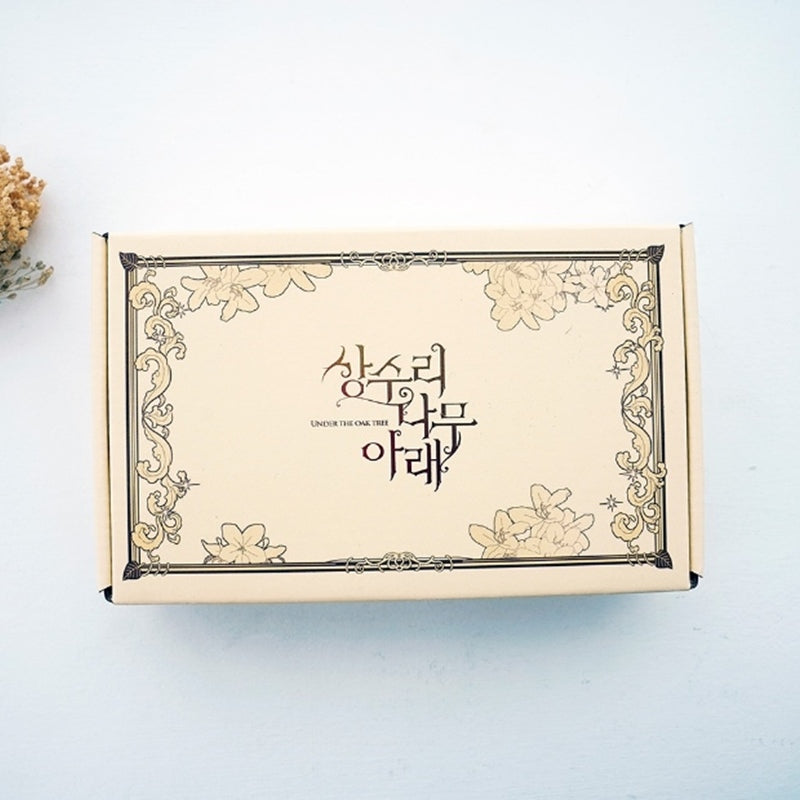 상수리
나무
UNDER THE OAK TREE
아래